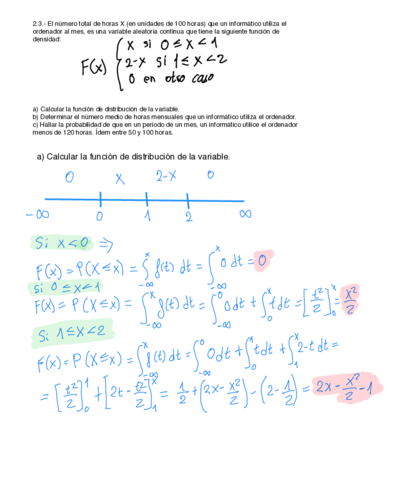 2.3.- El número total de horas X (en unidades de 100 horas) que un informático utiliza el
ordenador al mes, es una variable aleatoria continua que tiene la siguiente función de
densidad:
F(x) { x si 0 ≤ x < 1
2-x si 1 ≤ x < 2
0 en otro caso
a) Calcular la función de distribución de la variable.
b) Determinar el número medio de horas mensuales que un informático utiliza el ordenador.
c) Hallar la probabilidad de que en un periodo de un mes, un informático utilice el ordenador
menos de 120 horas. Ídem entre 50 y 100 horas.
a) Calcular la función de distribución de la variable.
0 x 2-x 0
-∞ 0 1 2 ∞
Si x<0 ⇒
F(x) = P(X≤x) = ∫_{-∞}^{x} f(t) dt = ∫_{-∞}^{x} 0 dt = 0
Si 0≤x<1
F(x) = P(X≤x) = ∫_{-∞}^{x} f(t) dt = ∫_{-∞}^{0} 0 dt + ∫_{0}^{x} t dt = [t²/2]_{0}^{x} = x²/2
Si 1≤x<2
F(x) = P(X≤x) = ∫_{-∞}^{x} f(t) dt = ∫_{-∞}^{0} 0 dt + ∫_{0}^{1} t dt + ∫_{1}^{x} 2-t dt =
= [t²/2]_{0}^{1} + [2t - t²/2]_{1}^{x} = 1/2 + (2x - x²/2) - (2 - 1/2) = 2x - x²/2 - 1